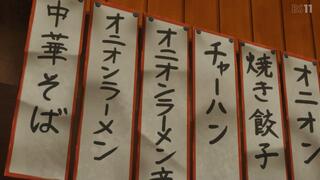 BS11
オニオン
焼き餃子
チャーハン
オニオンラーメン
オニオンラーメン
中華そば